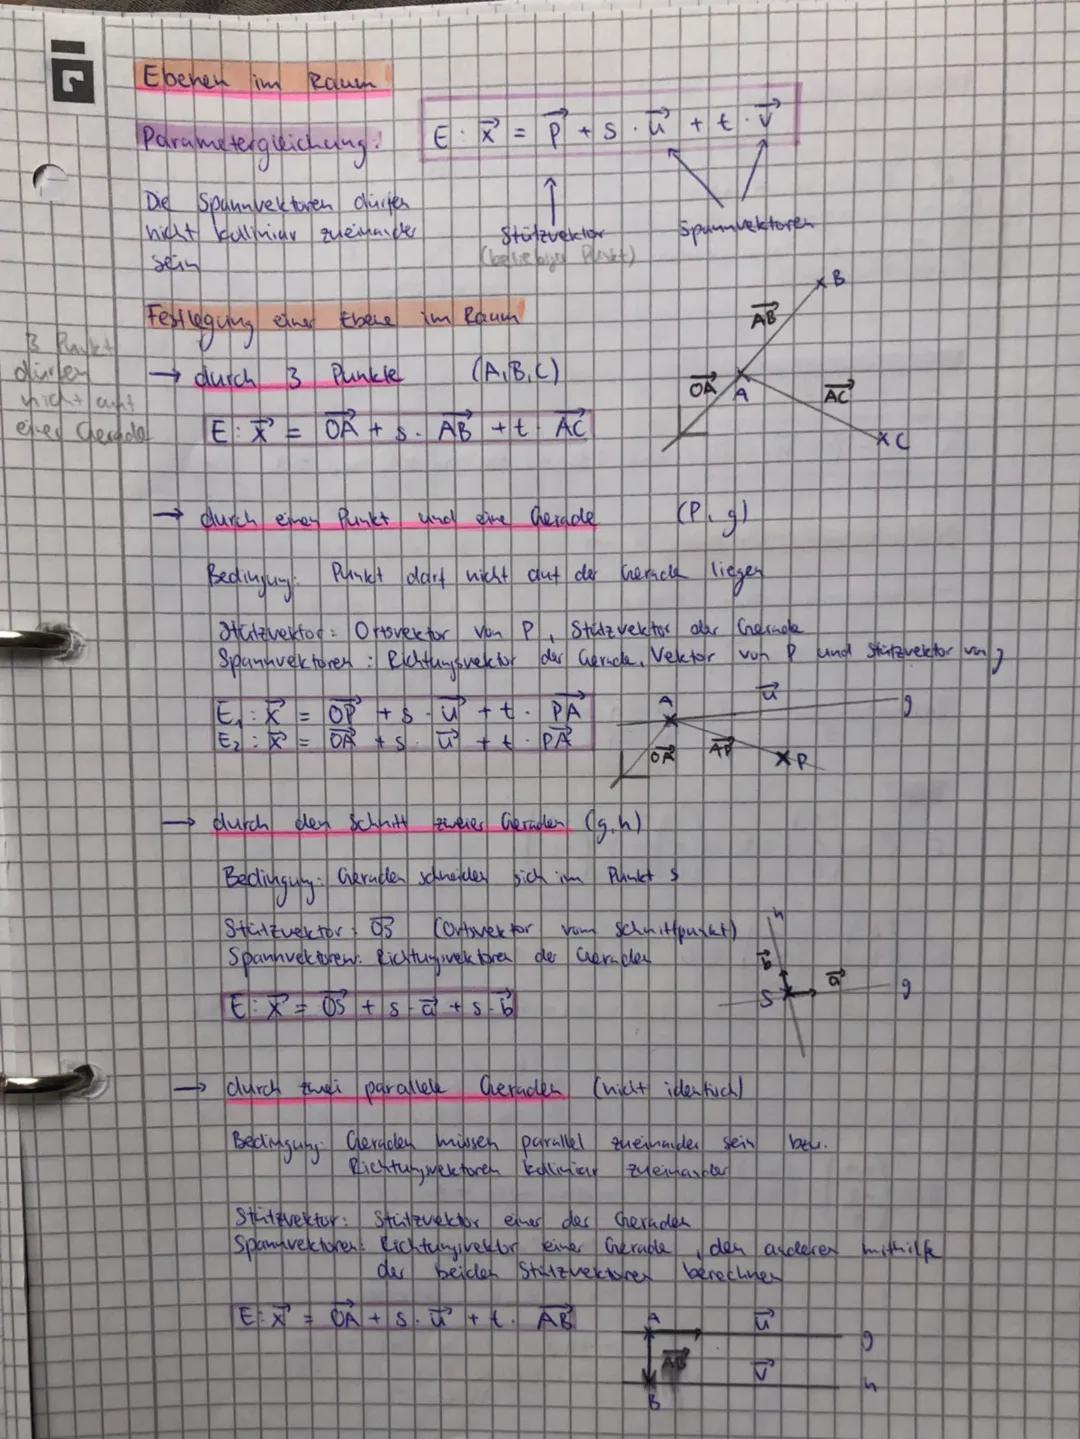 Ebenen im Raum
Parametergleichung:
E: x⃗ = p⃗ + s · u⃗ + t · v⃗
Die Spannvektoren dürfen
nicht kolliniar zueinander
sein
Stützvektor
(beliebiger Punkt)
Spannvektoren
Festlegung einer Ebene im Raum
3 Punkt
dürfen
nicht auf
einer Gerade
→ durch 3 Punkte (A,B,C)
E: x⃗ = OA⃗ + s · AB⃗ + t · AC⃗
B
AB⃗
OA⃗
A
AC⃗
C
→ durch einen Punkt und eine Gerade (P, g)
Bedingung: Punkt darf nicht auf der Gerade liegen
Stützvektor: Ortsvektor von P, Stützvektor der Gerade
Spannvektoren: Richtungsvektor der Gerade, Vektor von P und Stützvektor von g
E₁: x⃗ = OP⃗ + s · u⃗ + t · PA⃗
E₂: x⃗ = OA⃗ + s · u⃗ + t · PA⃗
A
u⃗
g
OA⃗
AP⃗
P
→ durch den Schnitt zweier Geraden (g,h)
Bedingung: Geraden schneiden sich im Punkt S
Stützvektor: OS⃗ (Ortsvektor vom Schnittpunkt)
Spannvektoren: Richtungsvektoren der Geraden
E: x⃗ = OS⃗ + s · a⃗ + s · b⃗
h
b⃗
S
a⃗
g
→ durch zwei parallele Geraden (nicht identisch)
Bedingung: Geraden müssen parallel zueinander sein bzw.
Richtungsvektoren kolliniar zueinander
Stützvektor: Stützvektor einer der Geraden
Spannvektoren: Richtungsvektor einer Gerade, den anderen mithilfe
der beiden Stützvektoren berechnen
E: x⃗ = OA⃗ + s · u⃗ + t · AB⃗
A
u⃗
g
AB⃗
v⃗
h
B